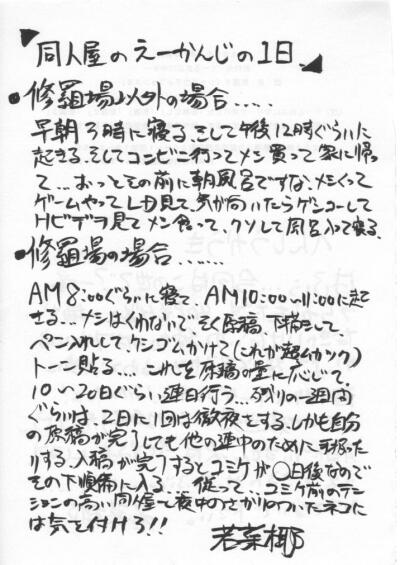 同人屋のえーかんじの1日
●修羅場以外の場合.....
早朝3時に寝る、そして午後12時ぐらいに
起きる、そしてコンビニ行ってメシ買って家に帰っ
て...おっとその前に朝風呂ですな、メシくって
ゲームやってLD見て、気が向いたらゲンコーして
Hビデヲ見てメシ食って、クソして風呂入って寝る。
●修羅場の場合.......
AM8:00ぐらいに寝て、AM10:00〜11:00に起
きる...メシはくわないで、そく原稿、下描きして、
ペン入れして、ケシゴムかけて(これが超ムカツク)
トーン貼る....これを原稿の量に応じて、
10〜20日ぐらい連日行う...残りの一週間
ぐらいは、2日に1回は徹夜をする、しかも自分
の原稿が完了しても他の連中のために手伝った
りする、入稿が完了するとコミケが〇日後なので
その下準備に入る...従って...コミケ前のテン
ションの高い同人屋と夜中のさかりのついたネコに
は気を付けろ!!
若菜椰